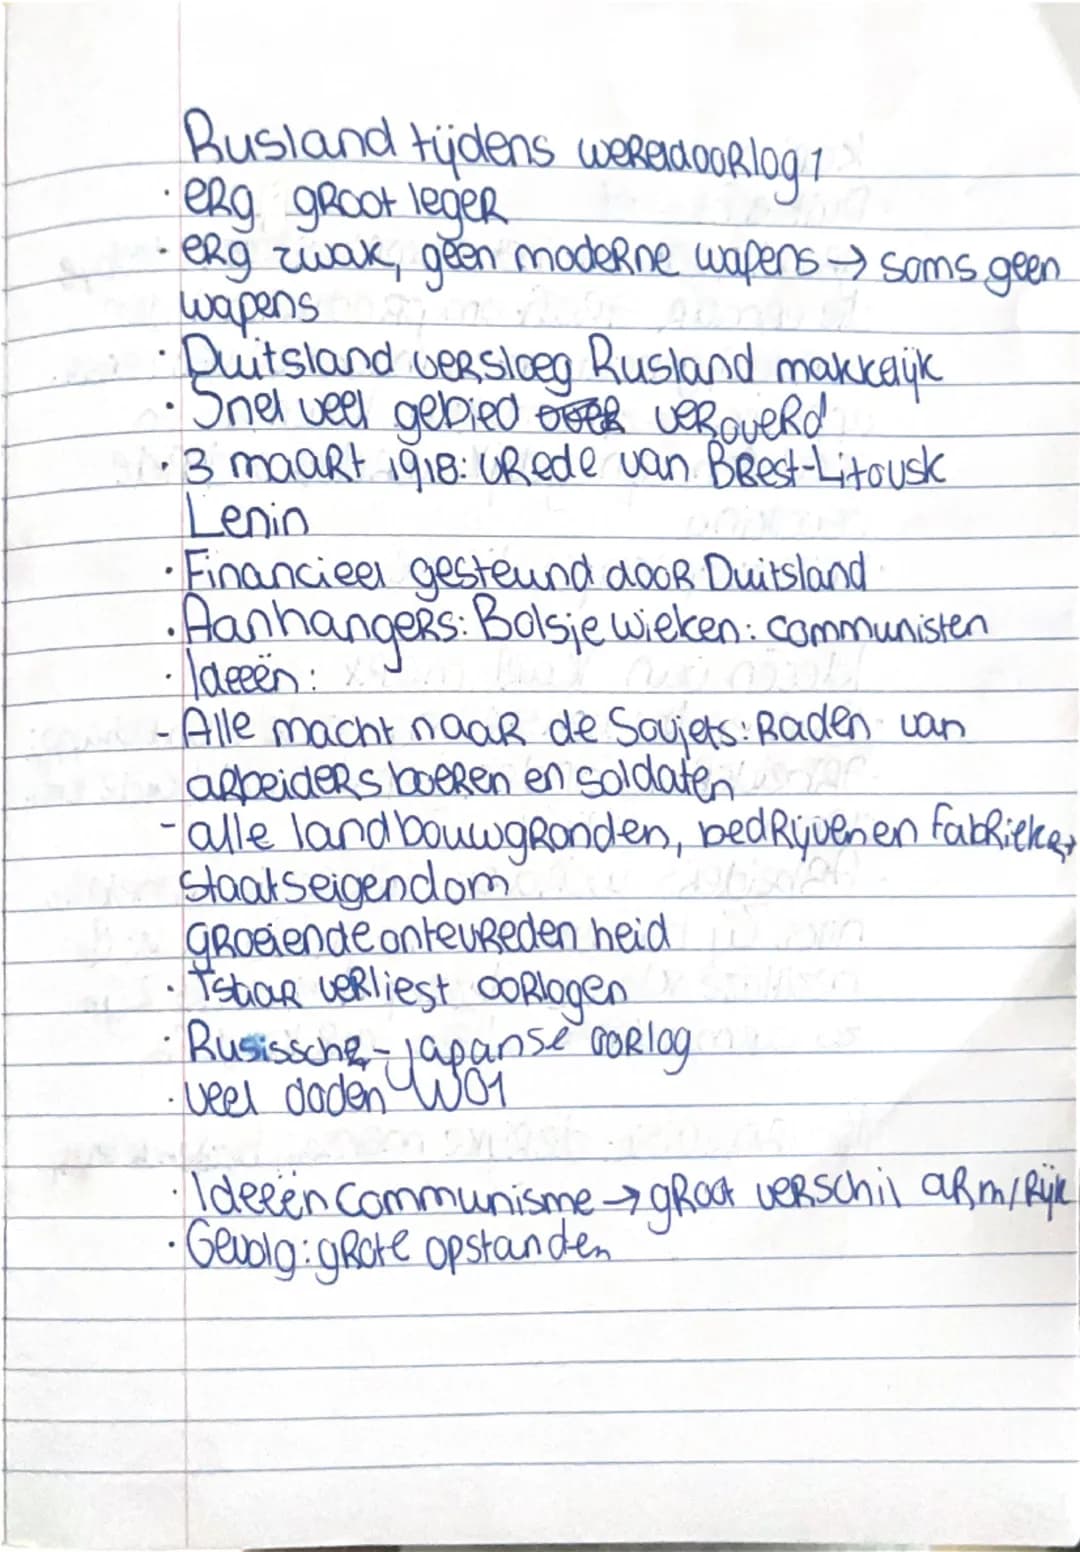 Rusland tijdens wereldoorlog 1
· erg groot leger
· erg zwak, geen moderne wapens → soms geen
wapens
· Duitsland versloeg Rusland makkelijk
· Snel veel gebied veroverd
· 3 maart 1918: vrede van Brest-Litovsk
Lenin
· Financieel gesteund door Duitsland
· Aanhangers: Bolsjewieken: communisten
· Ideeën:
- Alle macht naar de Sovjets: Raden van
arbeiders boeren en soldaten
- alle landbouwgronden, bedrijven en fabrieken
staatseigendom
groeiende ontevreden heid
· Tsaar verliest oorlogen
· Rusissche-japanse oorlog
· veel doden WO1
· Ideeën Communisme → groot verschil arm/rijk
· Gevolg: grote opstanden